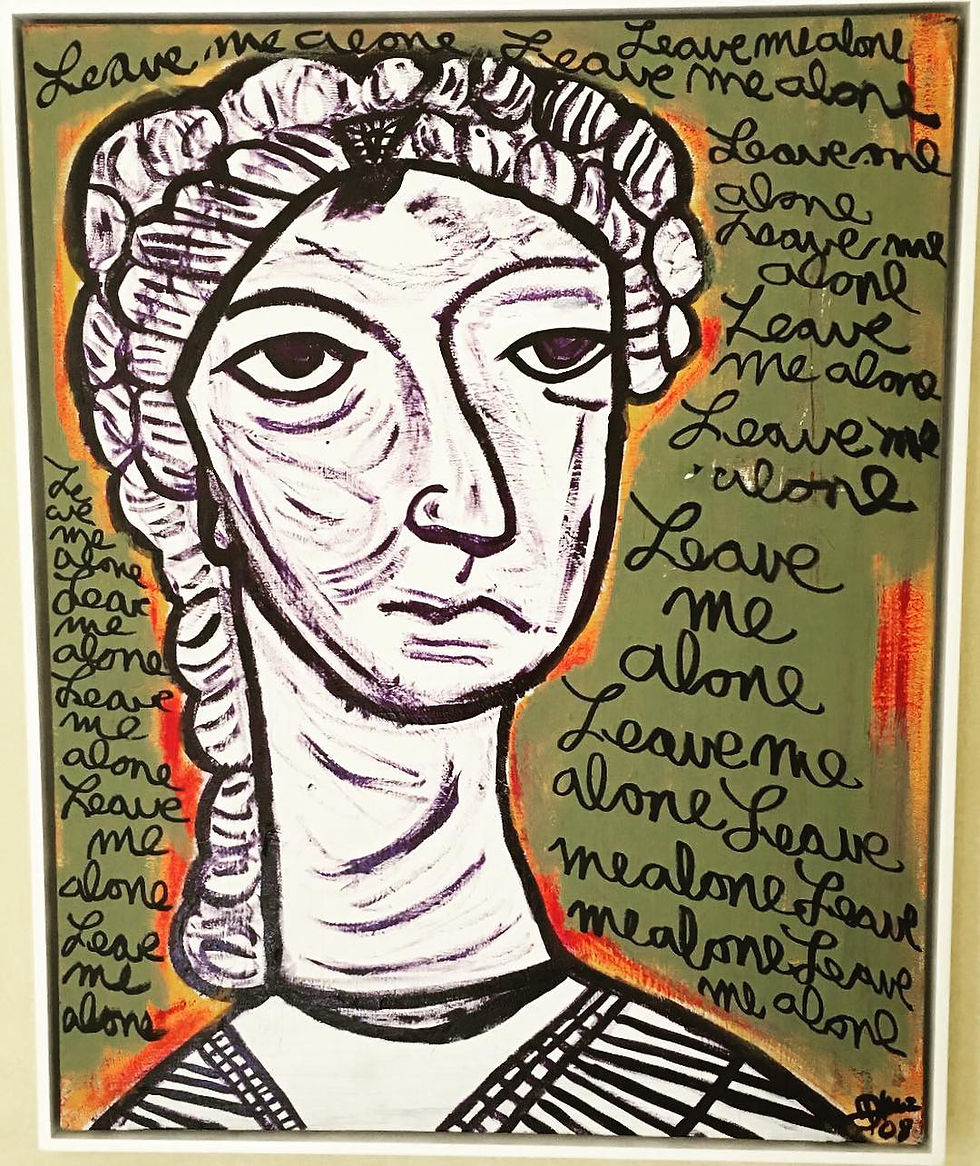 Leave me alone Leave me alone
Leave me alone
Leave me
alone
Leave me
alone
Leave
me alone
Leave me
alone
Leave
me
alone
Leave me
alone Leave
me alone Leave
me alone Leave
me alone
Le
ave
me
alone
Leave
me
alone
Leave
me
alone
Leave
me
alone
Leave
me
alone
'08